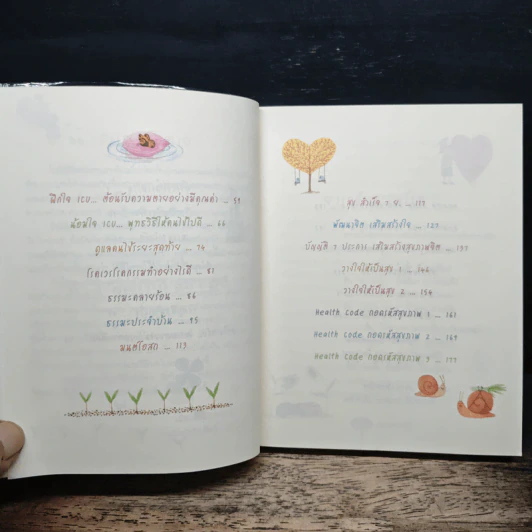 ฝึกใจ ICU... ต้อนรับความตายอย่างมีคุณค่า ... 59
น้อมใจ ICU... พุทธวิธีให้คนไข้ไปดี ... 66
ดูแลคนไข้ระยะสุดท้าย ... 74
โรคเวรโรคกรรมทำอย่างไรดี ... 81
ธรรมะคลายร้อน ... 86
ธรรมะประจำบ้าน ... 95
มนต์โอสถ ... 113
สุข สำเร็จ
พัฒนาจิต เสริมสร้างใจ ... 125
บัญญัติ ประการ เสริมสร้างสุขภาพจิต ... 137
วางใจให้เป็นสุข 1 ... 146
วางใจให้เป็นสุข 2 ... 154
Health Code ถอดรหัสสุขภาพ 1 ... 161
Health Code ถอดรหัสสุขภาพ 2 ... 169
Health Code ถอดรหัสสุขภาพ 3 ... 177